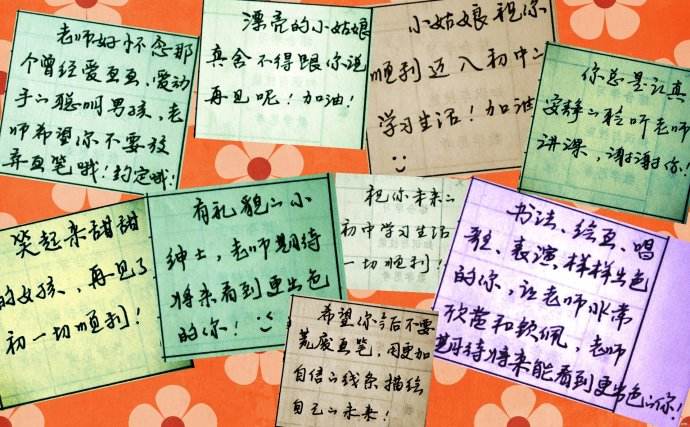 老师好怀念那
个曾经爱画画、爱动
手的聪明男孩,老
师希望你不要放
弃画笔哦!约定哦!
漂亮的小姑娘
真舍不得跟你说
再见呢!加油!
小姑娘祝你
顺利迈入初中的
学习生活!加油
你总是认真
安静的聆听老师
讲课,谢谢你!
笑起来甜甜
的女孩,再见了
初一切顺利!
有礼貌的小
绅士,老师期待
将来看到更出色
的你!
祝你未来的
初中学习生活
一切顺利!
希望你今后不要
荒废画笔,用更加
自信的线条描绘
自己的未来!
书法、绘画、唱
歌、表演,样样出色
的你,让老师非常
欣赏和钦佩,老师
期待将来能看到更出色的你!